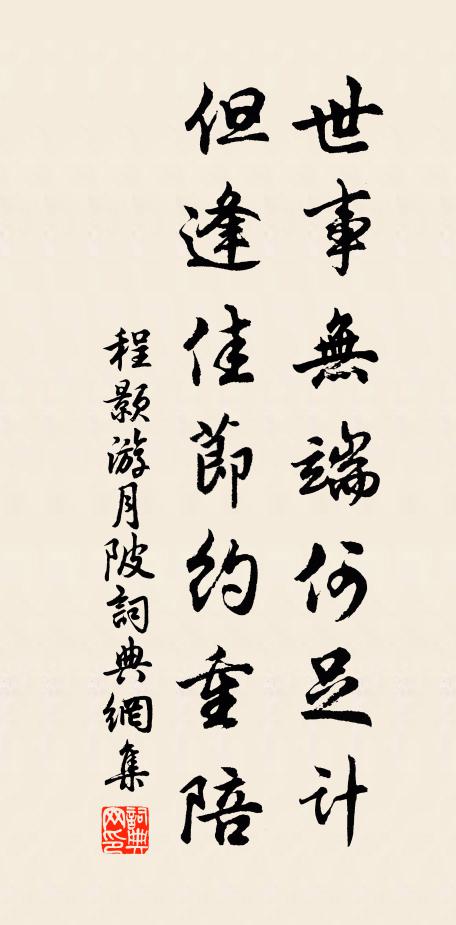 世事無端何足計
但逢佳節約重陪
程顥游月陂詞典網集
詞典网印